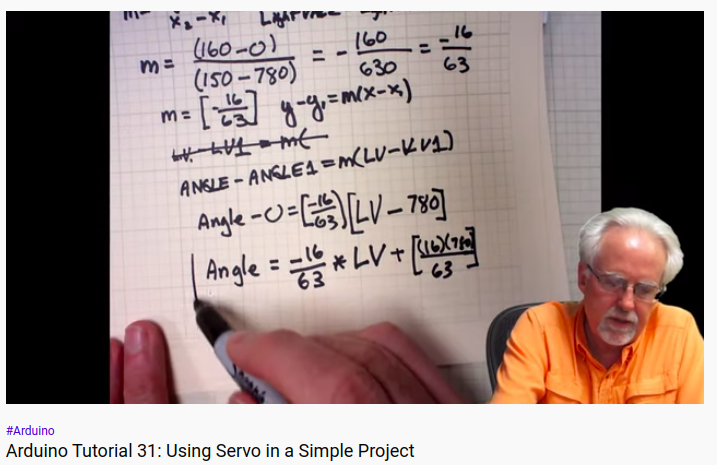 m= x₂-x₁
m= (160-0) / (150-780) = - 160 / 630 = -16 / 63
m= [-16/63] y-y₁=m(x-x₁)
LV-LV1=m(
ANGLE-ANGLE1=m(LV-LV1)
Angle-0=[-16/63][LV-780]
Angle = -16/63 * LV + [(16)(780)/63]
#Arduino
Arduino Tutorial 31: Using Servo in a Simple Project